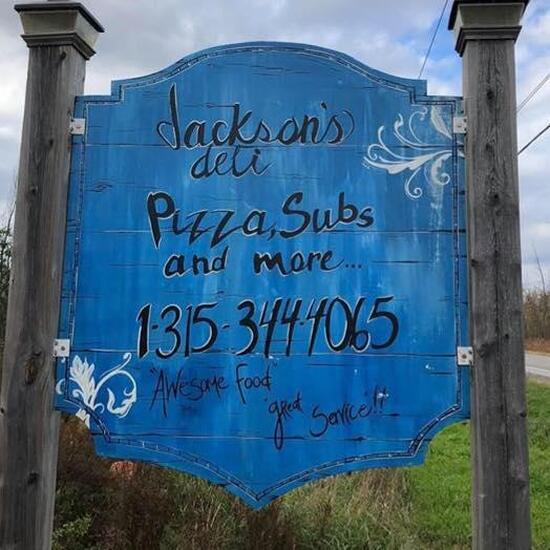 Jackson's
deli
Pizza, Subs
and more...
1-315-344-4065
"Awesome Food"
"great Service"!!